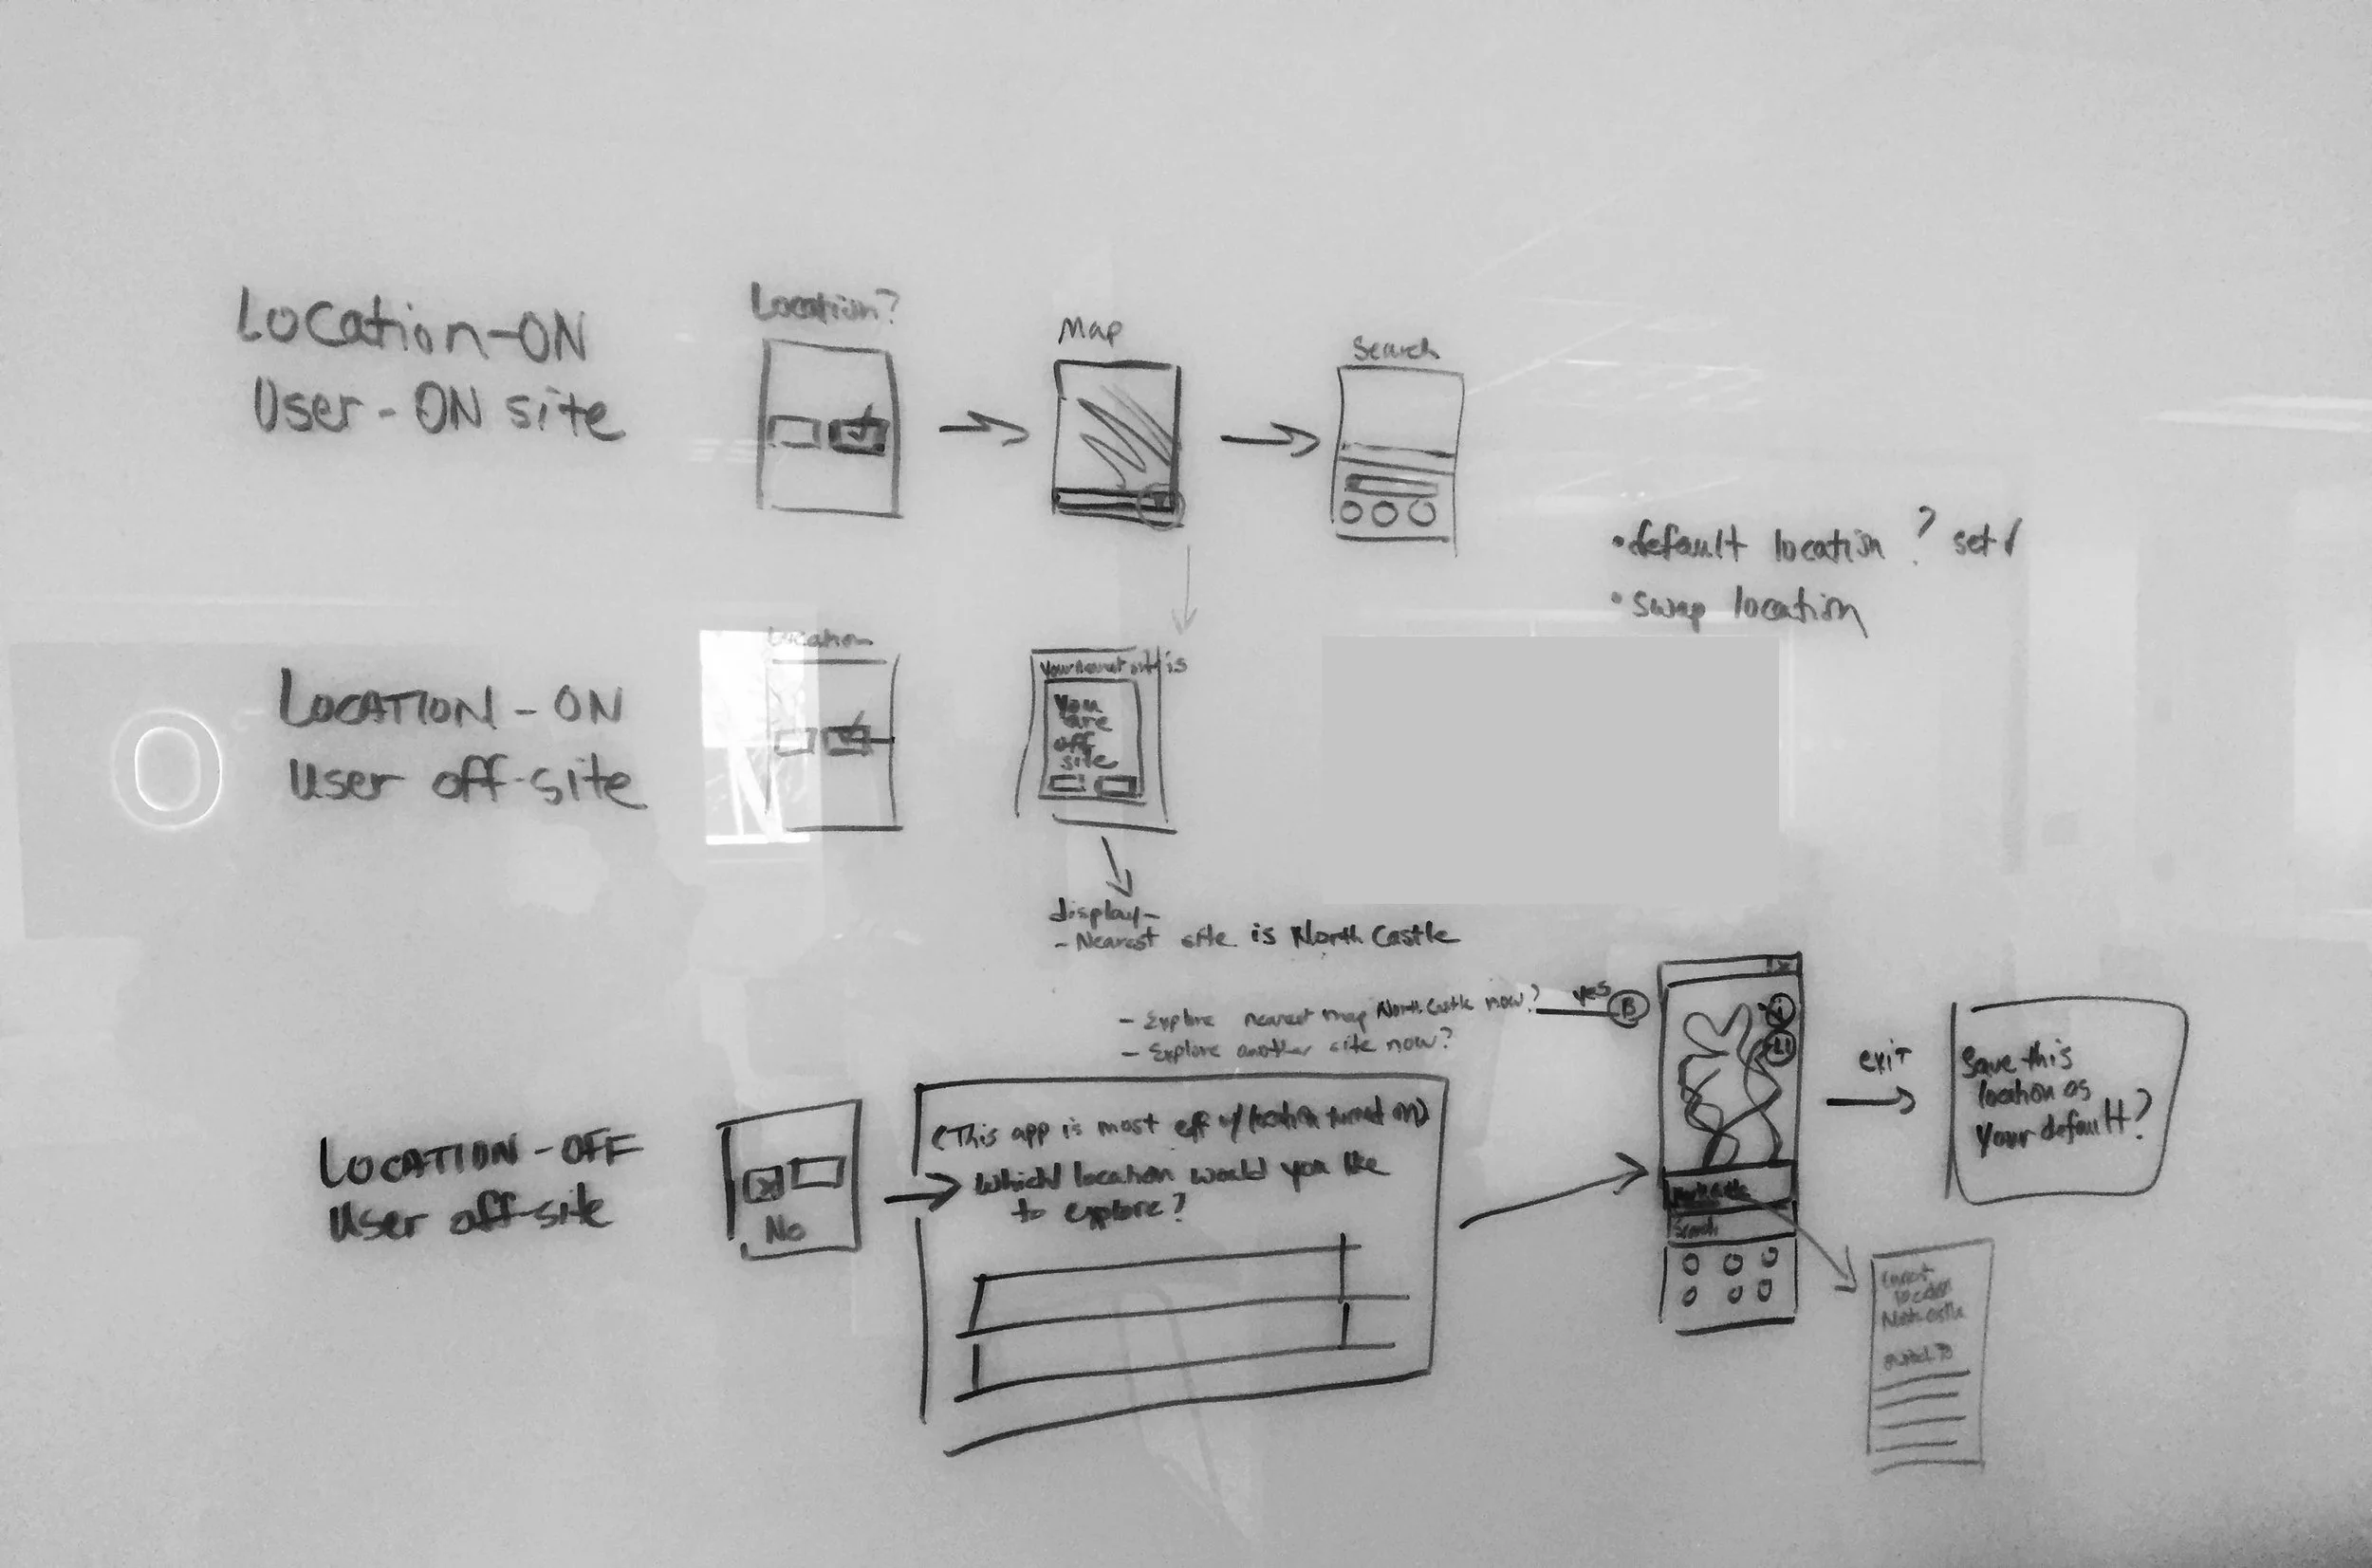 Location-ON
User-ON site
Location?
Map
Search
•default location? set ✓
•swap location
LOCATION-ON
User off-site
Location
Your nearest is
You
are
off
site
display-
-Nearest site is North Castle
-Explore nearest map North Castle now? yes B
-Explore another site now?
LOCATION-OFF
User off-site
No
(This app is most eff w/location turned on)
Which location would you like
to explore?
Search
exit
Save this
location as
your default?
location
switch to